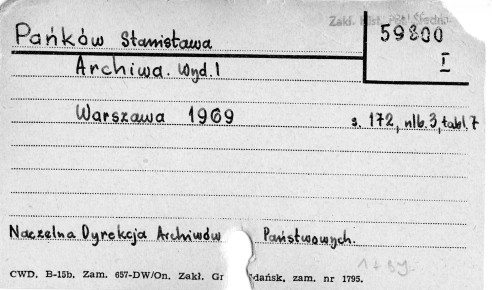 Zakł. Hist. Pol. Średn.
Pańków Stanisława
59800
I
Archiwa. Wyd. 1
Warszawa 1969
s. 172, nlb. 3, tabl. 7
Naczelna Dyrekcja Archiwów Państwowych.
CWD. B-15b. Zam. 657-DW/On. Zakł. Gr Gdańsk, zam. nr 1795.